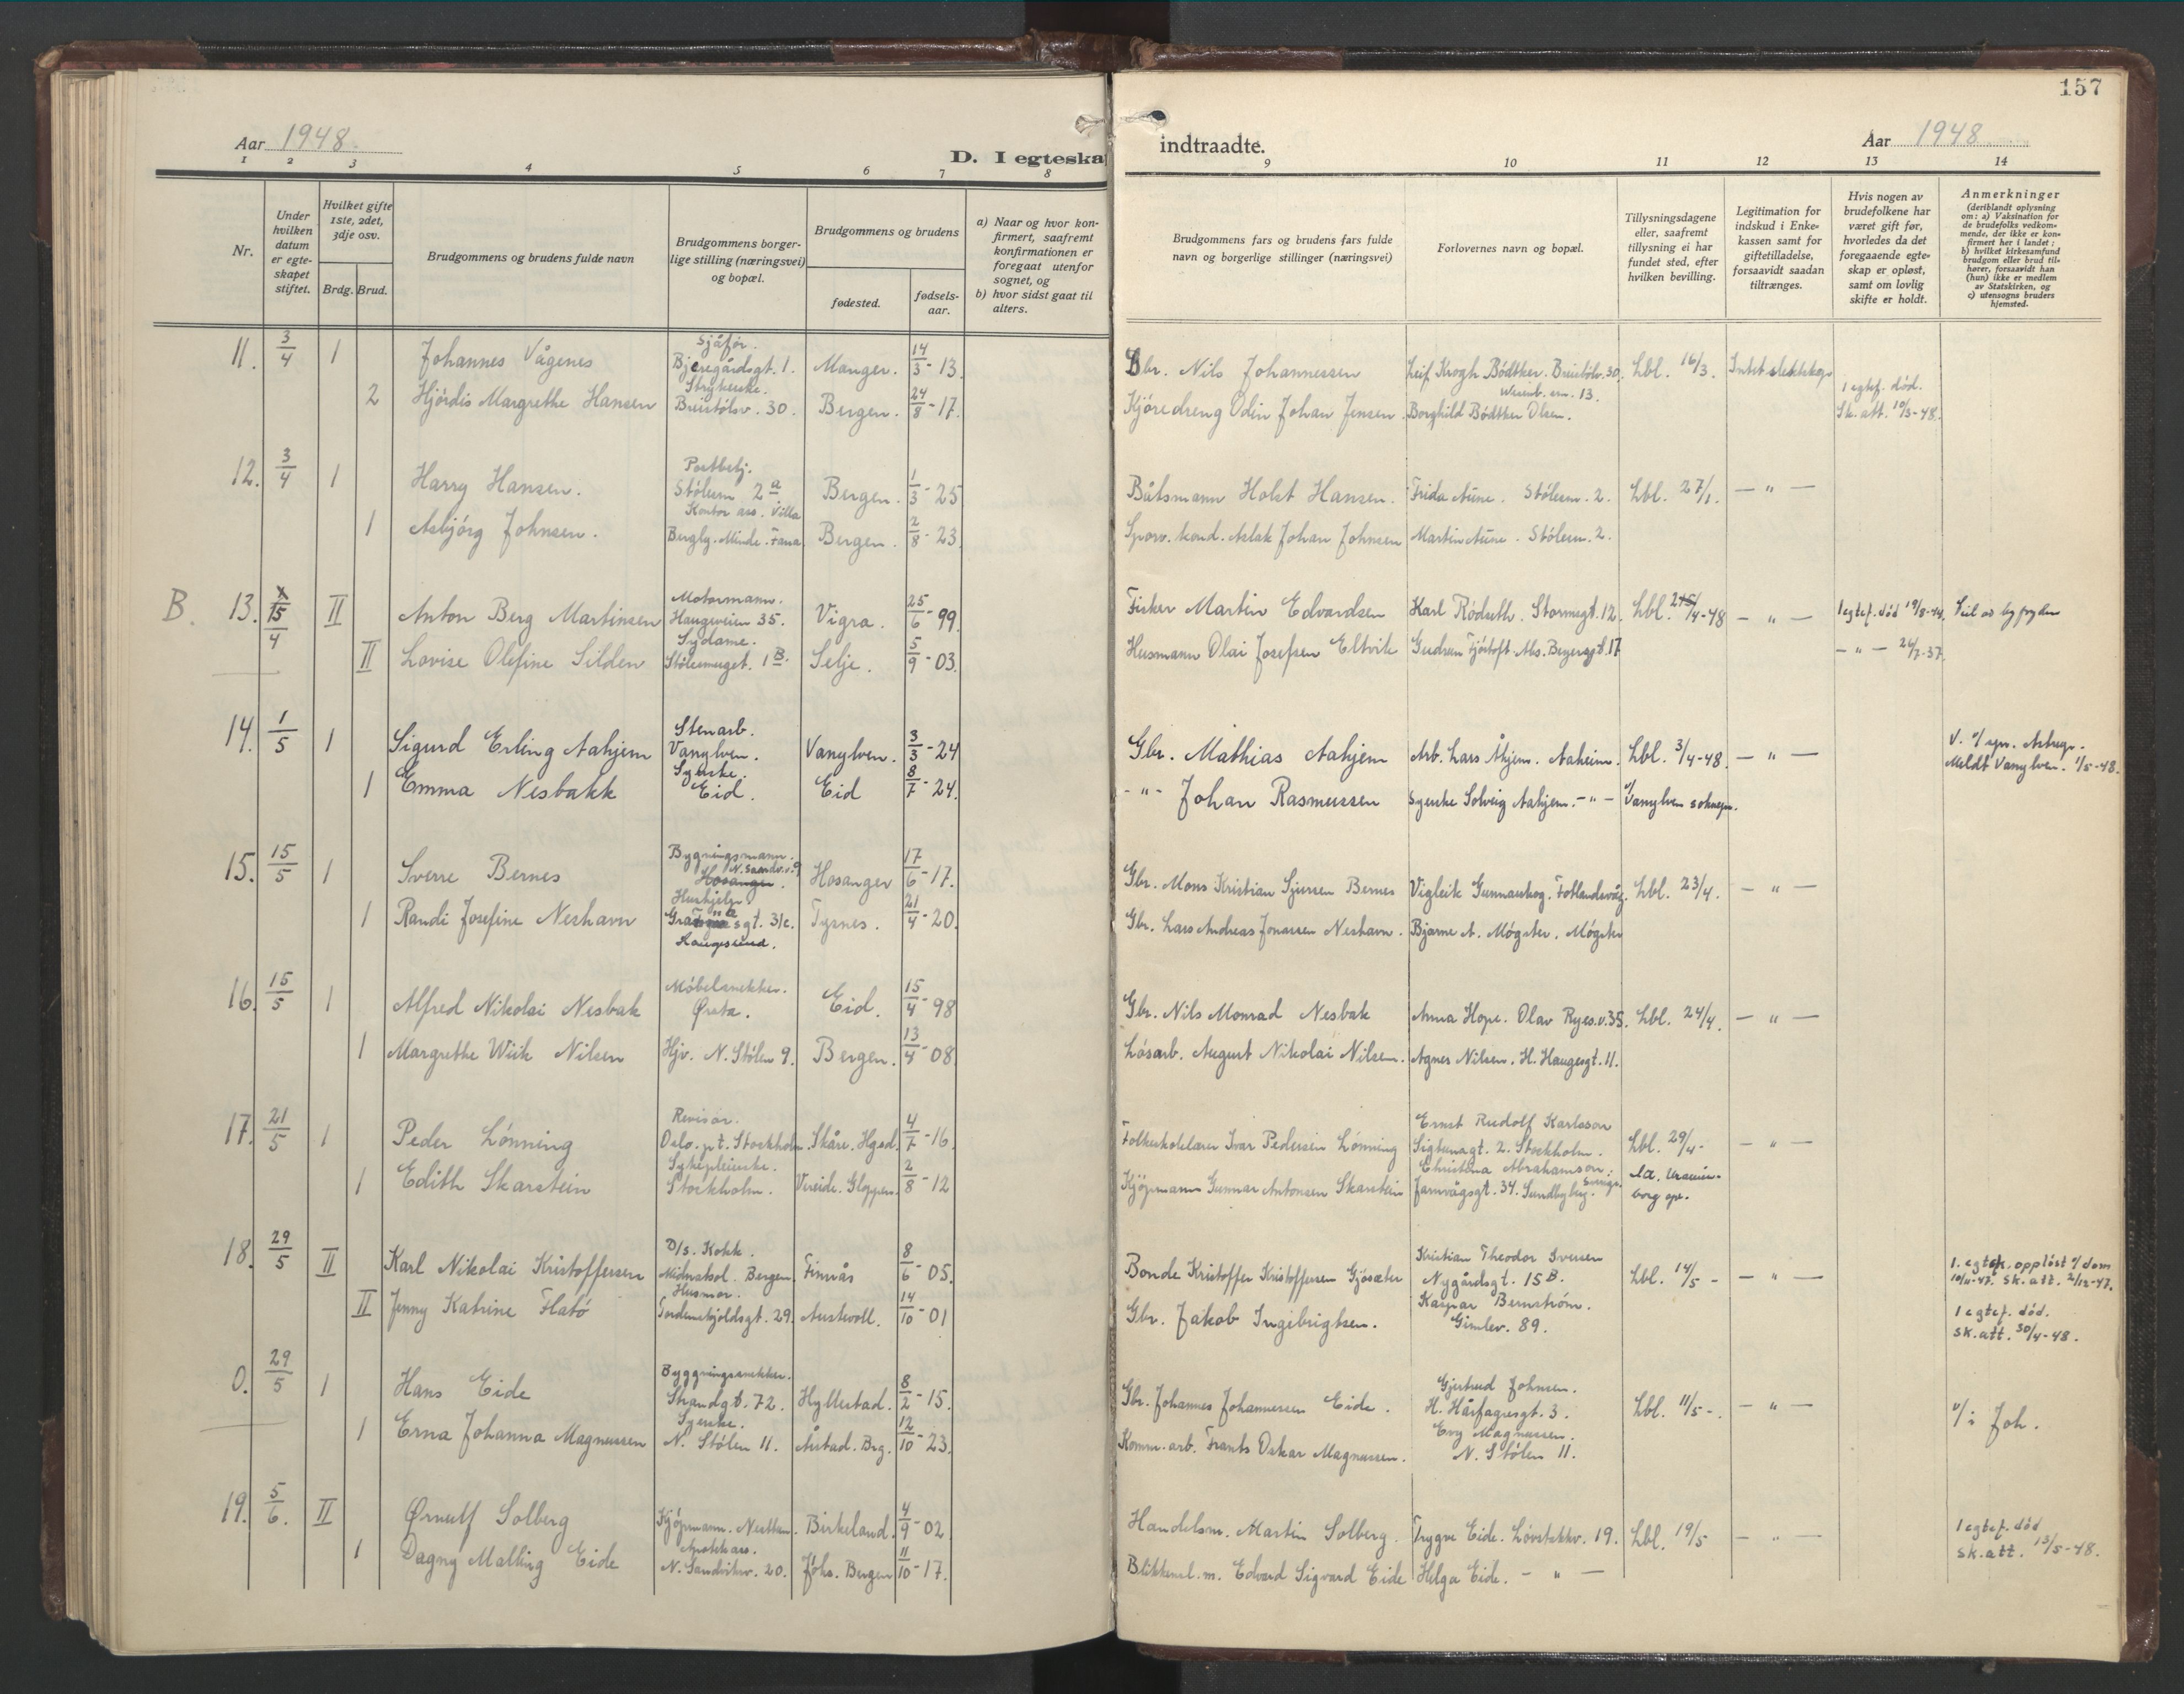 157
Aar 1948.
D. I egteska
indtraadte.
Aar 1948
1 2 3 4 5 6 7 8 9 10 11 12 13 14
Nr.
Under hvilken datum er egteskapet stiftet.
Hvilket gifte 1ste, 2det, 3dje osv.
Brdg. Brud.
Brudgommens og brudens fulde navn
Brudgommens borgerlige stilling (næringsvei) og bopæl.
Brudgommens og brudens
fødested.
fødselsaar.
a) Naar og hvor konfirmert, saafremt konfirmationen er foregaat utenfor sognet, og
b) hvor sidst gaat til alters.
Brudgommens fars og brudens fars fulde navn og borgerlige stillinger (næringsvei)
Forlovernes navn og bopæl.
Tillysningsdagene eller, saafremt tillysning ei har fundet sted, efter hvilken bevilling.
Legitimation for indskud i Enkekassen samt for giftetilladelse, forsaavidt saadan tiltrænges.
Hvis nogen av brudefolkene har været gift før, hvorledes da det foregaaende egteskap er opløst, samt om lovlig skifte er holdt.
Anmerkninger (deriblandt oplysning om: a) Vaksination for de brudefolks vedkommende, der ikke er konfirmert her i landet; b) hvilket kirkesamfund brudgom eller brud tilhører, forsaavidt han (hun) ikke er medlem av Statskirken, og c) utensogns bruders hjemsted.
11. 3/4 1 Johannes Vågenes Sjåfør. Bjeregårdsgt. 1. Manger. 14/3-13. Gbr. Nils Johannessen Leif Krogh Bødtker. Breistølsv. 30. Lbl. 16/3. Intet slektskap
2 Hjørdis Margrethe Hansen Strykerske. Breistølsv. 30. Bergen. 24/8-17. Kjøredreng Odin Johan Jensen. Borghild Bødtker Olsen. 13. 1 egtef. død. Sk. att. 10/3-48.
12. 3/4 1 Harry Hansen. Postbetj. Stølesm. 2 a Bergen. 1/3-25 Båtsmann Holst Hansen. Frida Aune. Stølesm. 2. Lbl. 27/1. — " —
1 Asbjørg Johnsen. Kontor ass. Villa Bergly. Minde. Fana Bergen. 2/8-23. Sporv. kond. Aslak Johan Johnsen Martin Aune. Stølesm. 2.
B. 13. 15/4 II Anton Berg Martinsen Motormann. Haugeveien 35. Vigra. 25/6-99. Fisker Martin Edvardsen Karl Rødseth. Stormsgt. 12. Lbl. /4-48 — " — 1 egtef. død 19/8-44.
II Lovise Olefine Silden Sydame. Stølesmuget. 1 B. Selje. 5/9-03. Husmann Olai Josefsen Eltvik Gudrun Fjørtoft. Abs. Beyersgt. 17 — " — 24/7-37.
14. 1/5 1 Sigurd Erling Aahjem Stenarb. Vanylven. Vanylven. 3/3-24 Gbr. Mathias Aahjem Arb. Lars Åhjem. Aaheim. Lbl. 3/4-48. — " — Meldt Vanylven. 1/5-48.
1 Emma Nesbakk Syerske. Eid. Eid 8/7-24. - " - Johan Rasmussen Syerske Solveig Aahjem. - " - v/ Vanylven soknepr.
15. 15/5 1 Sverre Bernes Bygningsmann. N. Sandv.v. 9 Hosanger. Hosanger 17/6-17. Gbr. Mons Kristian Sjursen Bernes Vigleik Gunnarskog. Fotlandsvåg. Lbl. 23/4. — " —
1 Randi Josefine Neshavn Hushjelp. sgt. 31c. Haugesund. Tysnes. 21/4-20. Gbr. Lars Andreas Jonassen Neshavn. Bjarne A. Møgster. Møgster
16. 15/5 1 Alfred Nikolai Nesbak Møbelsnekker. Ørsta. Eid. 15/4-98 Gbr. Nils Monrad Nesbak Anna Hope. Olav Ryes.v. 35. Lbl. 24/4. — " —
1 Margrethe Wiik Nilsen Hjv. N. Stølen 9. Bergen. 13/4-08. Løsarb. August Nikolai Nilsen. Agnes Nilsen. H. Haugesgt. 11.
17. 21/5 1 Peder Lønning Revisor. Oslo. p.t. Stockholm. Skåre. Hgsd. 4/7-16. Folkeskolelærer Ivar Pedersen Lønning Ernst Rudolf Karlsson Sigtunagt. 2. Stockholm. Lbl. 29/4- — " —
1 Edith Skarstein Sykepleierske. Stockholm. Vereide. Gloppen. 2/8-12 Kjøpmann Gunnar Antonsen Skarstein Christina Abrahamson: Järnvägsgt. 34. Sundbyberg. Sverige.
18. 29/5 II Karl Nikolai Kristoffersen D/s. Kokk. Midnatsol. Bergen. Finnås 8/6-05. Bonde Kristoffer Kristoffersen Gjøsæter Kristian Theodor Iversen Nygårdsgt. 15 B. Lbl. 14/5- — " — 1. egtsk. oppløst v/ dom 10/11-47. Sk. att. 2/12-47.
II Jenny Katrine Flatø Husmor. Tordenskjoldsgt. 29. Austevoll. 14/10-01 Gbr. Jakob Ingebrigtsen. Kaspar Bernstrøm. Gimlev. 89. 1 egtef. død. Sk. att. 30/4-48.
0. 29/5 1 Hans Eide Byggningssnekker. Strandgt. 72. Hyllestad. 8/2-15. Gbr. Johannes Johannessen Eide. Gjertrud Johnsen. H. Hårfagresgt. 3. Lbl. 11/5-. — " — v/i Joh.
1 Erna Johanna Magnussen Syerske. N. Stølen 11. Årstad. Brg. 12/10-23. Komm. arb. Frants Oskar Magnussen. Evy Magnussen. N. Stølen 11.
19. 5/6. II Ørnulf Solberg Kjøpmann. Nesttun. Birkeland. 4/9-02 Handelsm. Martin Solberg. Trygve Eide. Løvstakkv. 19. Lbl. 19/5 — " — 1 egtef. død Sk. att. 13/5-48.
1 Dagny Malling Eide N. Sandvikv. 20. Johs. Bergen 11/10-17. Blikkensl. m. Edvard Sigvard Eide Helga Eide. — " —